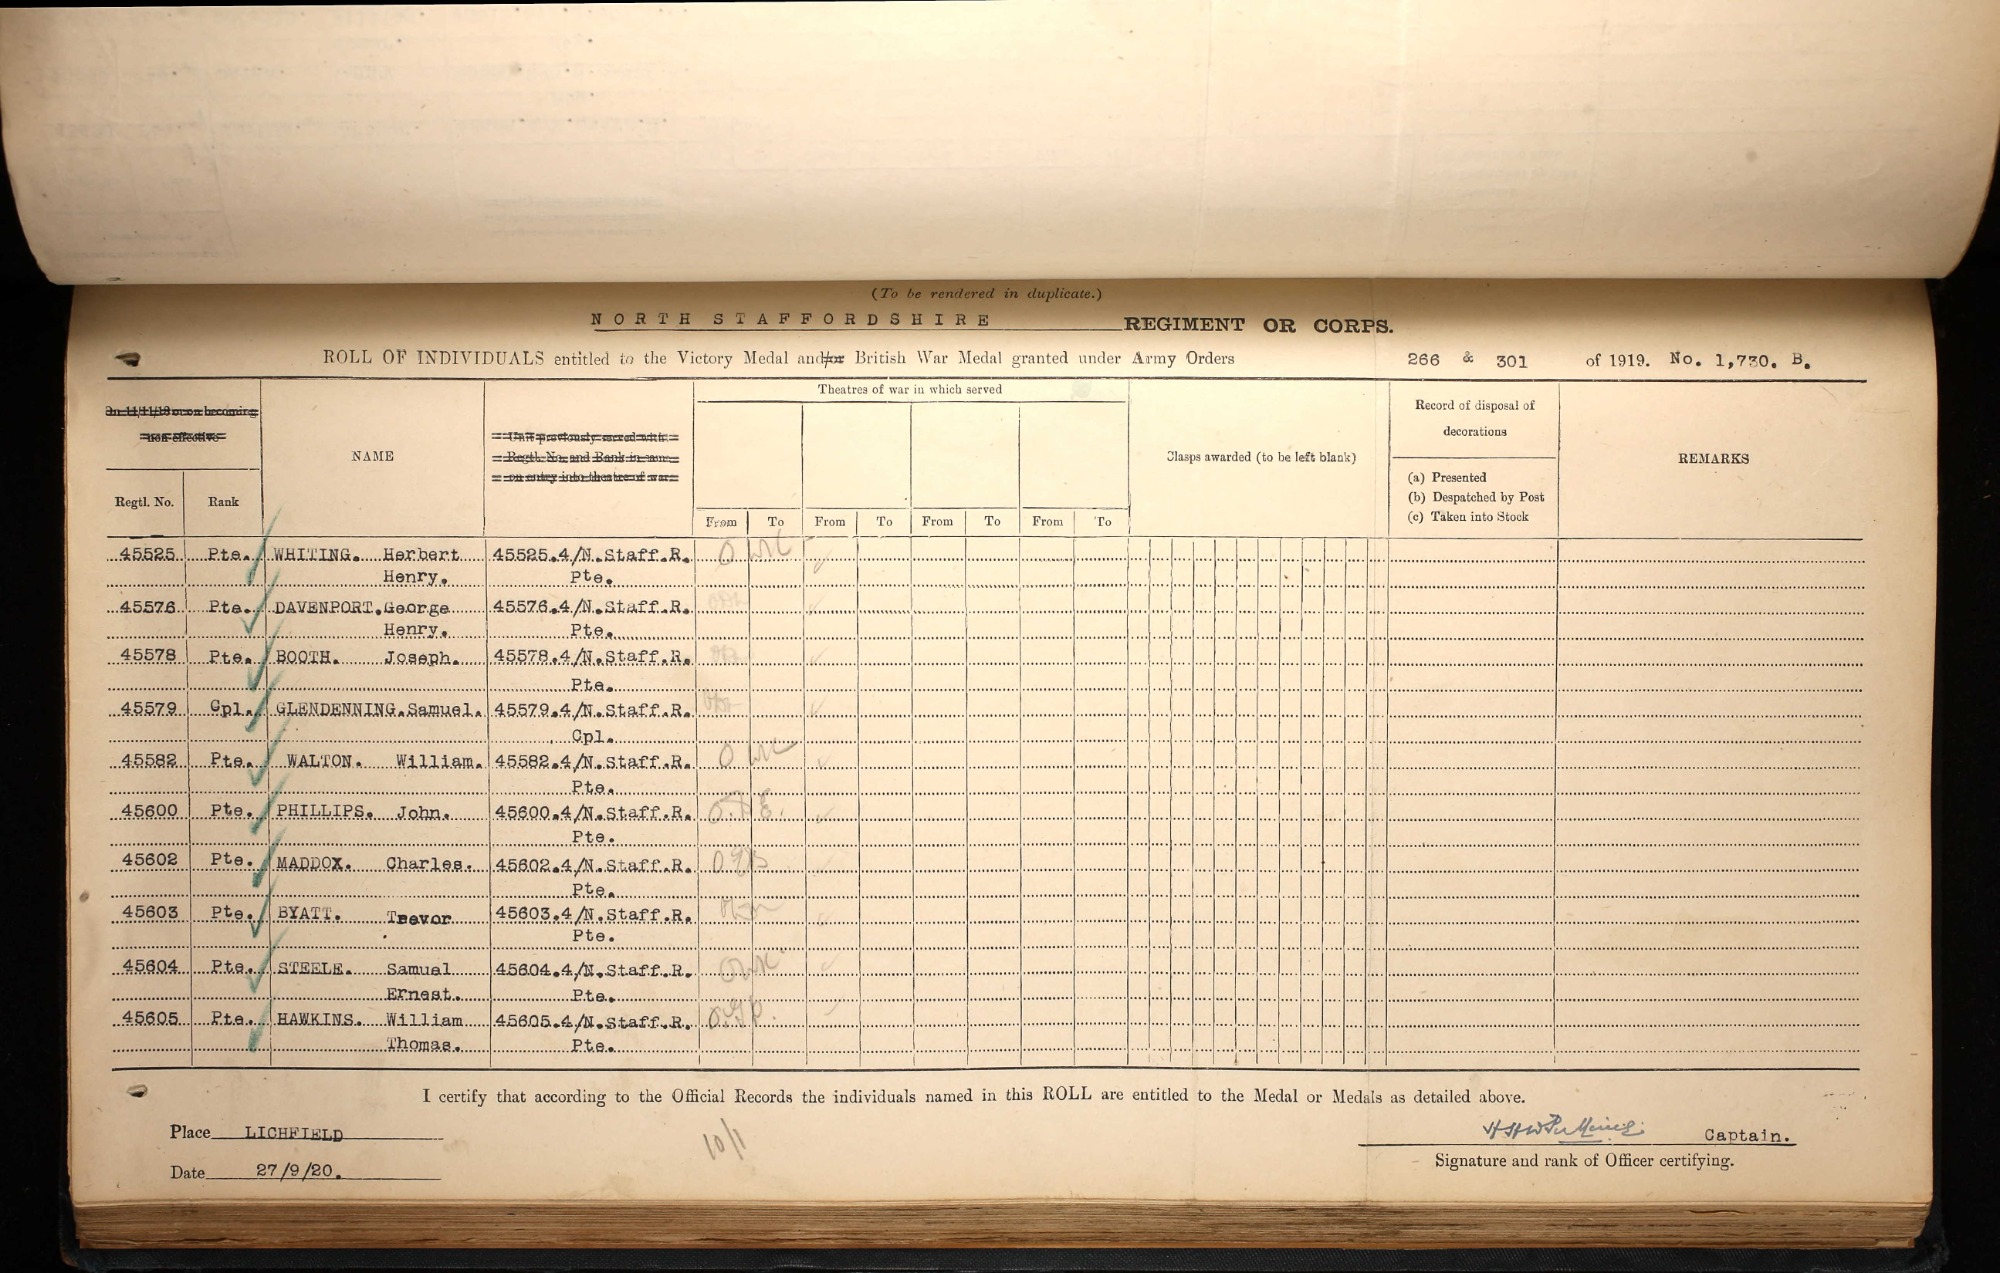 (To be rendered in duplicate.)
NORTH STAFFORDSHIRE REGIMENT OR CORPS.
ROLL OF INDIVIDUALS entitled to the Victory Medal and/or British War Medal granted under Army Orders 266 & 301 of 1919. No. 1,730. B.
Theatres of war in which served
On 11/11/18 or on becoming
non-effective
Regtl. No. Rank
NAME
Unit previously served with
Regtl. No. and Rank in same
on entry into theatre of war
From To From To From To From To
Clasps awarded (to be left blank)
Record of disposal of
decorations
(a) Presented
(b) Despatched by Post
(c) Taken into Stock
REMARKS
45525 Pte. WHITING. Herbert 45525.4/N.Staff.R.
Henry. Pte.
45576 Pte. DAVENPORT. George 45576.4/N.Staff.R.
Henry. Pte.
45578 Pte. BOOTH. Joseph. 45578.4/N.Staff.R.
Pte.
45579 Cpl. GLENDENNING. Samuel. 45579.4/N.Staff.R.
Cpl.
45582 Pte. WALTON. William. 45582.4/N.Staff.R.
Pte.
45600 Pte. PHILLIPS. John. 45600.4/N.Staff.R.
Pte.
45602 Pte. MADDOX. Charles. 45602.4/N.Staff.R.
Pte.
45603 Pte. BYATT. Trevor 45603.4/N.Staff.R.
Pte.
45604 Pte. STEELE. Samuel 45604.4/N.Staff.R.
Ernest. Pte.
45605 Pte. HAWKINS. William 45605.4/N.Staff.R.
Thomas. Pte.
I certify that according to the Official Records the individuals named in this ROLL are entitled to the Medal or Medals as detailed above.
Place LICHFIELD
10/1
Captain.
Signature and rank of Officer certifying.
Date 27/9/20.